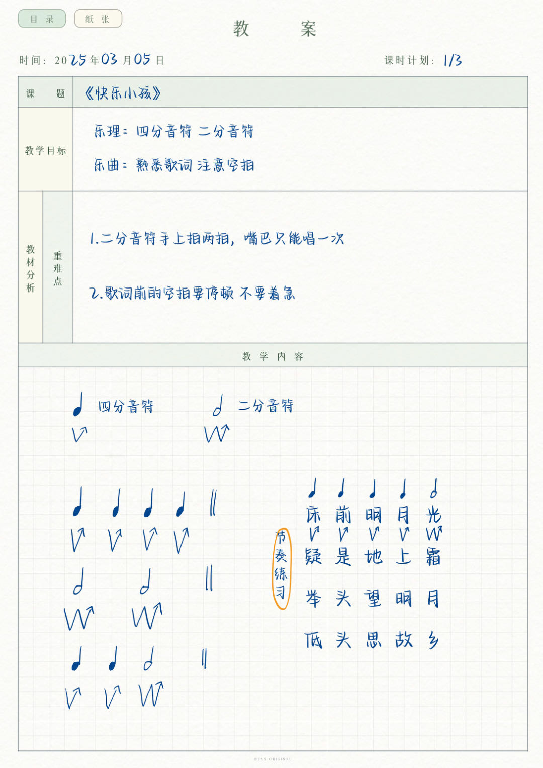 目 录 纸 张
教 案
时间: 2025年03月05日 课时计划: 1/3
课 题 《快乐小孩》
教学目标 乐理: 四分音符 二分音符
乐曲: 熟悉歌词 注意空拍
教材分析 重难点
1.二分音符手上拍两拍, 嘴巴只能唱一次
2.歌词前的空拍要停顿 不要着急
教 学 内 容
四分音符 二分音符
节奏练习
床 前 明 月 光
疑 是 地 上 霜
举 头 望 明 月
低 头 思 故 乡